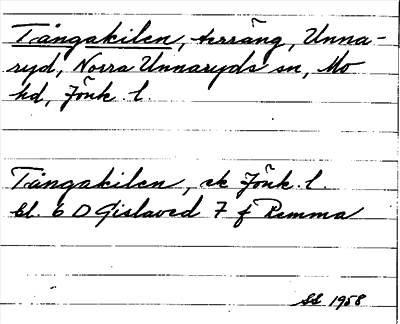 Tångakilen, terräng, Unna-
ryd, Norra Unnaryds sn, Mo
hd, Jönk. l.
Tångakilen, ek Jönk. l.
bl. 6 D Gislaved 7 f Remma
SS 1958